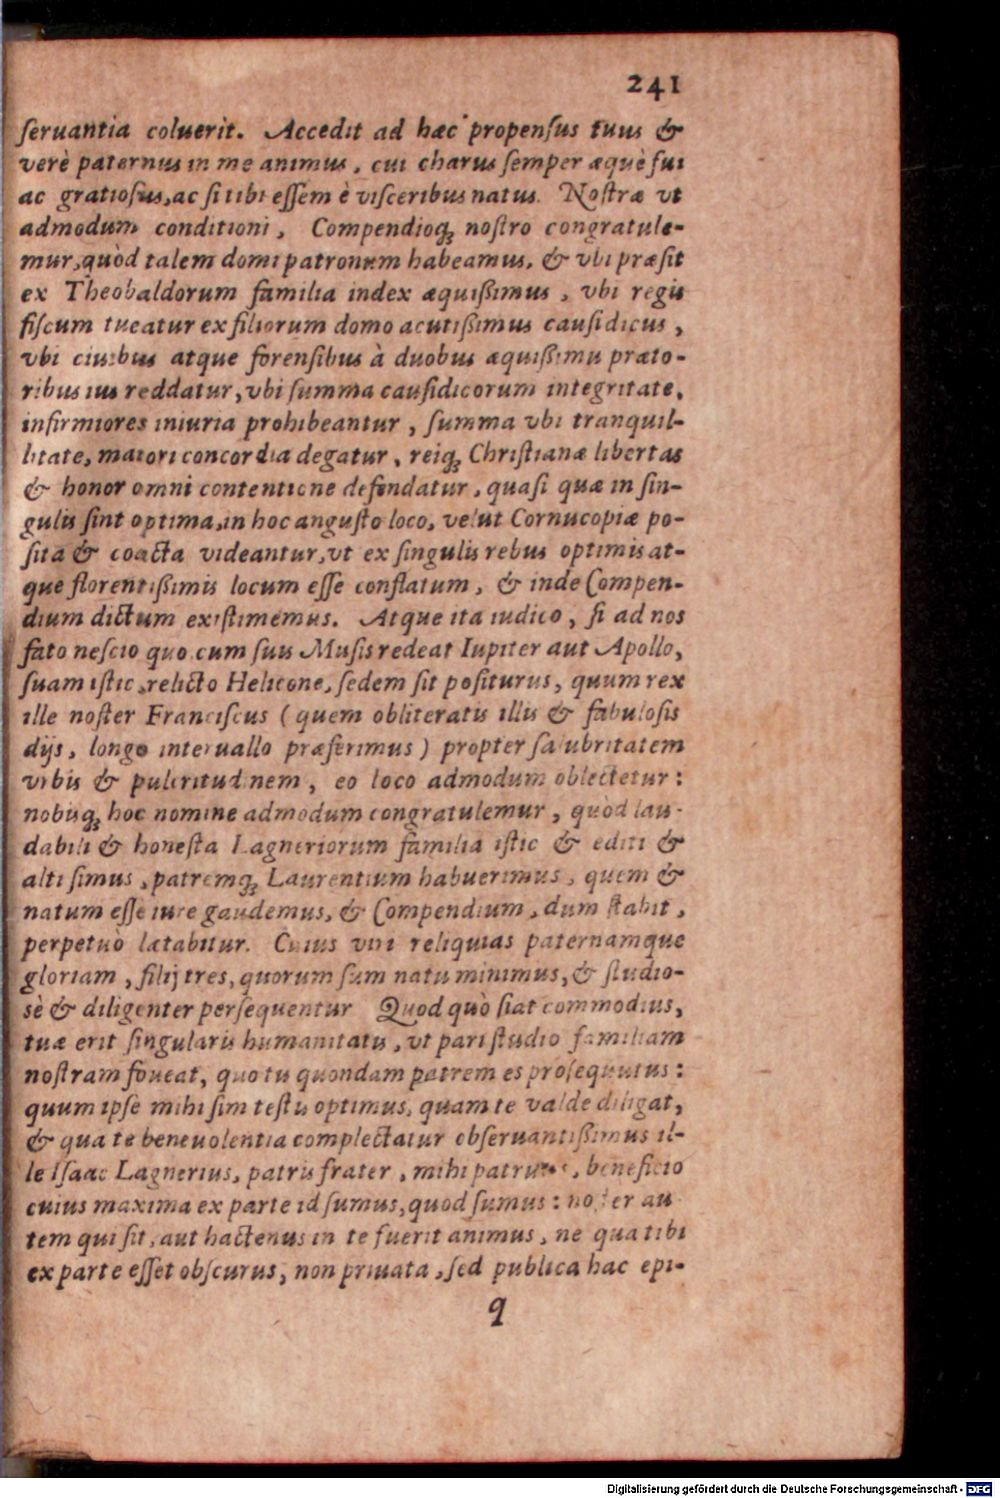 241
ſeruantia coluerit. Accedit ad hæc propenſus tuus &
verè paternus in me animus, cui charus ſemper æquè fui
ac gratioſus, ac ſi tibi eſſem è viſceribus natus. Noſtræ vt
admodum conditioni, Compendioq; noſtro congratule-
mur, quòd talem domi patronum habeamus, & vbi præſit
ex Theobaldorum familia iudex æquißimus, vbi regis
fiſcum tueatur ex filiorum domo acutißimus cauſidicus,
vbi ciuibus atque forenſibus à duobus æquißimis præto-
ribus ius reddatur, vbi ſumma cauſidicorum integritate,
infirmiores iniuria prohibeantur, ſumma vbi tranquil-
litate, maiori concordia degatur, reiq; Chriſtianæ libertas
& honor omni contentione defendatur, quaſi quæ in ſin-
gulis ſint optima, in hoc anguſto loco, velut Cornucopiæ po-
ſita & coacta videantur, vt ex ſingulis rebus optimis at-
que florentißimis locum eſſe conflatum, & inde Compen-
dium dictum exiſtimemus. Atque ita iudico, ſi ad nos
fato neſcio quo cum ſuis Muſis redeat Iupiter aut Apollo,
ſuam iſtic, relicto Helicone, ſedem ſit poſiturus, quum rex
ille noſter Franciſcus ( quem obliteratis illis & fabuloſis
dijs, longo interuallo præferimus ) propter ſalubritatem
vrbis & pulcritudinem, eo loco admodum oblectetur:
nobisq; hoc nomine admodum congratulemur, quòd lau-
dabili & honeſta Lagneriorum familia iſtic & editi &
alti ſimus, patremq; Laurentium habuerimus, quem &
natum eſſe iure gaudemus, & Compendium, dum ſtabit,
perpetuò lætabitur. Cuius viri reliquias paternamque
gloriam, filij tres, quorum ſum natu minimus, & ſtudio-
sè & diligenter perſequentur Quod quò fiat commodius,
tuæ erit ſingularis humanitatis, vt pari ſtudio familiam
noſtram foueat, quo tu quondam patrem es proſequutus:
quum ipſe mihi ſim teſtis optimus, quam te valde diligat,
& qua te beneuolentia complectatur obſeruantißimus il-
le Iſaac Lagnerius, patris frater, mihi patruus, beneficio
cuius maxima ex parte id ſumus, quod ſumus: noſter au
tem qui ſit, aut hactenus in te fuerit animus, ne qua tibi
ex parte eſſet obſcurus, non priuata, ſed publica hac epi-
q
Digitalisierung gefördert durch die Deutsche Forschungsgemeinschaft - DFG